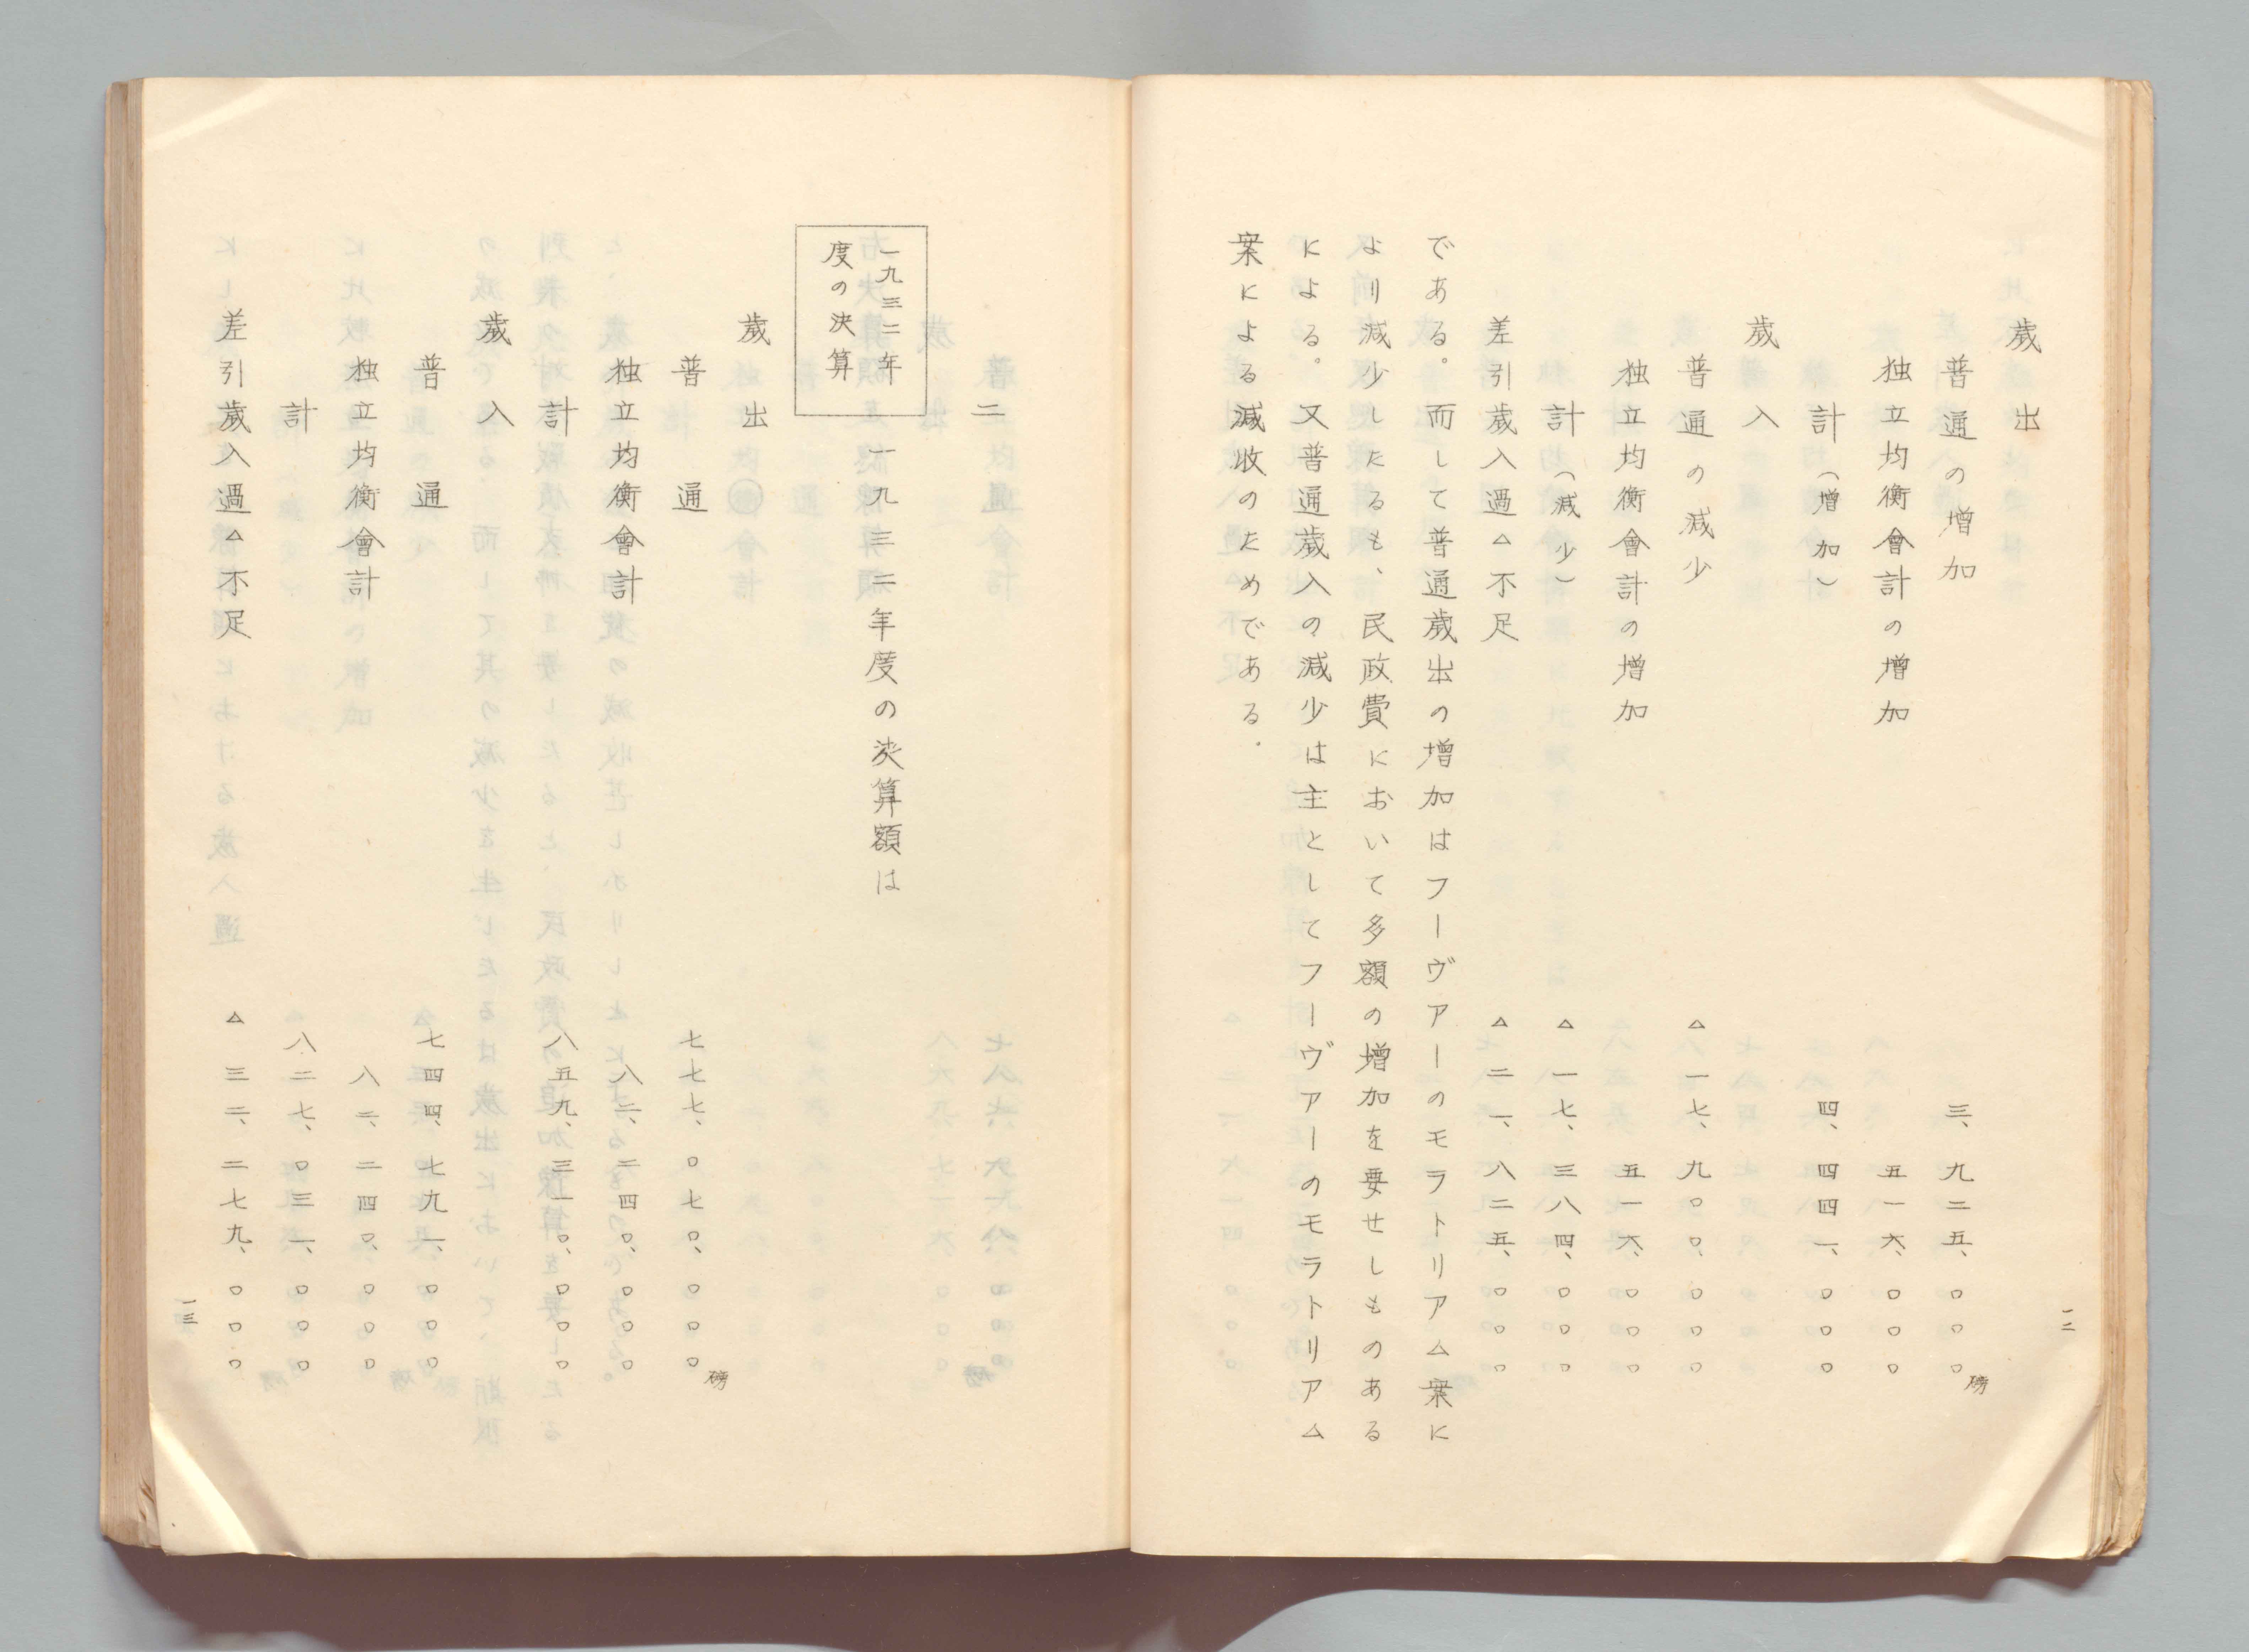 歳出
普通の増加 三、九二五、〇〇〇磅
独立均衡會計の増加 五一六、〇〇〇
計(増加) 四、四四一、〇〇〇
歳入
普通の減少 △一七、九〇〇、〇〇〇
独立均衡會計の増加 五一六、〇〇〇
計(減少) △一七、三八四、〇〇〇
差引歳入過△不足 △二一、八二五、〇〇〇
である。而して普通歳出の増加はフーヴァーのモラトリアム案に
より減少したるも、民政費において多額の増加を要せしものある
による。又普通歳入の減少は主としてフーヴァーのモラトリアム
案による減收のためである.
一二
二
一九三二年
度の決算
一九三二年度の决算額は
歳出
普通 七七七、〇七〇、〇〇〇磅
独立均衡會計 八二、二四〇、〇〇〇
計 八五九、三一〇、〇〇〇
歳入
普通 七四四、七九一、〇〇〇
独立均衡會計 八二、二四〇、〇〇〇
計 八二七、〇三一、〇〇〇
差引歳入過△不足 △三二、二七九、〇〇〇
一三